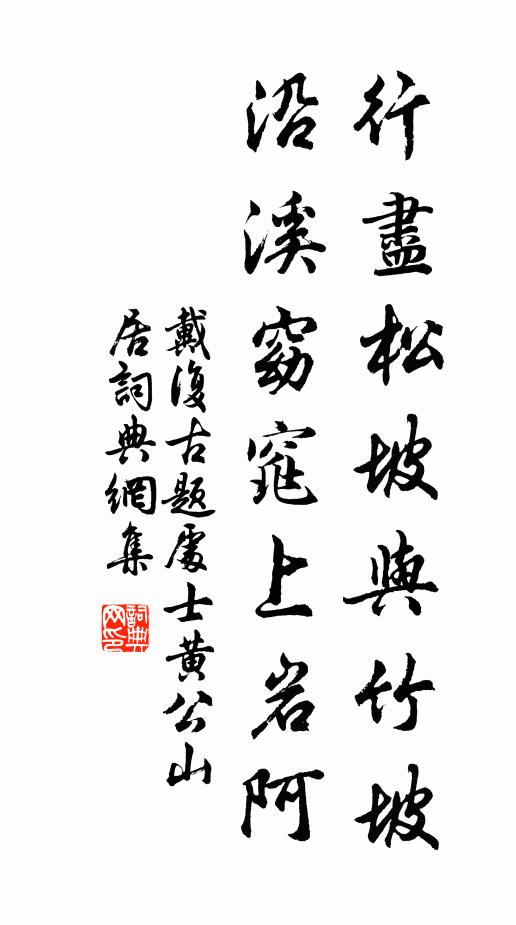 行盡松坡與竹坡
沿溪窈窕上岩阿
戴復古題處士黄公山
居詞典網集
詞典網印